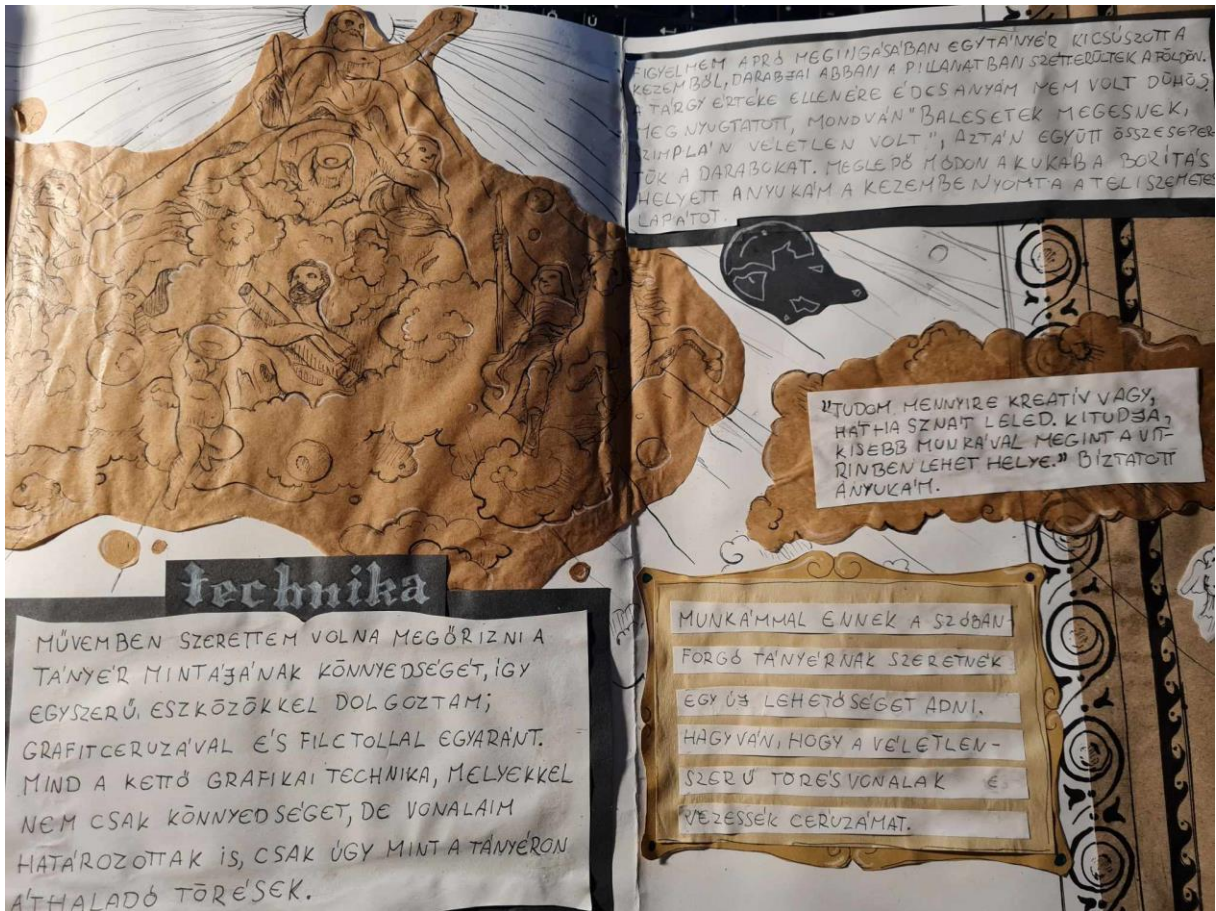 FIGYELMEM APRÓ MEGINGÁSÁBAN EGY TÁNYÉR KICSÚSZOTT A
KEZEMBŐL, DARABJAI ABBAN A PILLANATBAN SZÉTTERÜLTEK A FÖLDÖN.
A TÁRGY ÉRTÉKE ELLENÉRE ÉDESANYÁM NEM VOLT DÜHÖS,
MEGNYUGTATOTT, MONDVÁN "BALESETEK MEGESNEK,
SZIMPLÁN VÉLETLEN VOLT", AZTÁN EGYÜTT ÖSSZESEPER-
TÜK A DARABOKAT. MEGLEPŐ MÓDON A KUKÁBA BORÍTÁS
HELYETT ANYUKÁM A KEZEMBE NYOMTA A TELI SZEMETES
LAPÁTOT.
"TUDOM, MENNYIRE KREATÍV VAGY,
HÁTHA SZNÁT LELED. KITUDJA,
KISEBB MUNKÁVAL MEGINT A VIT-
RINBEN LEHET HELYE." BÍZTATOTT
ANYUKÁM.
technika
MŰVEMBEN SZERETTEM VOLNA MEGŐRIZNI A
TÁNYÉR MINTÁJÁNAK KÖNNYEDSÉGÉT, ÍGY
EGYSZERŰ, ESZKÖZÖKKEL DOLGOZTAM;
GRAFITCERUZÁVAL ÉS FILCTOLLAL EGYARÁNT.
MIND A KETTŐ GRAFIKAI TECHNIKA, MELYEKKEL
NEM CSAK KÖNNYEDSÉGET, DE VONALAIM
HATÁROZOTTAK IS, CSAK ÚGY MINT A TÁNYÉRON
ÁTHALADÓ TÖRÉSEK.
MUNKÁMMAL ENNEK A SZÓBAN-
FORGÓ TÁNYÉRNAK SZERETNÉK
EGY ÚJ LEHETŐSÉGET ADNI.
HAGYVÁN, HOGY A VÉLETLEN-
SZERŰ TÖRÉSVONALAK E
VEZESSÉK CERUZÁMAT.